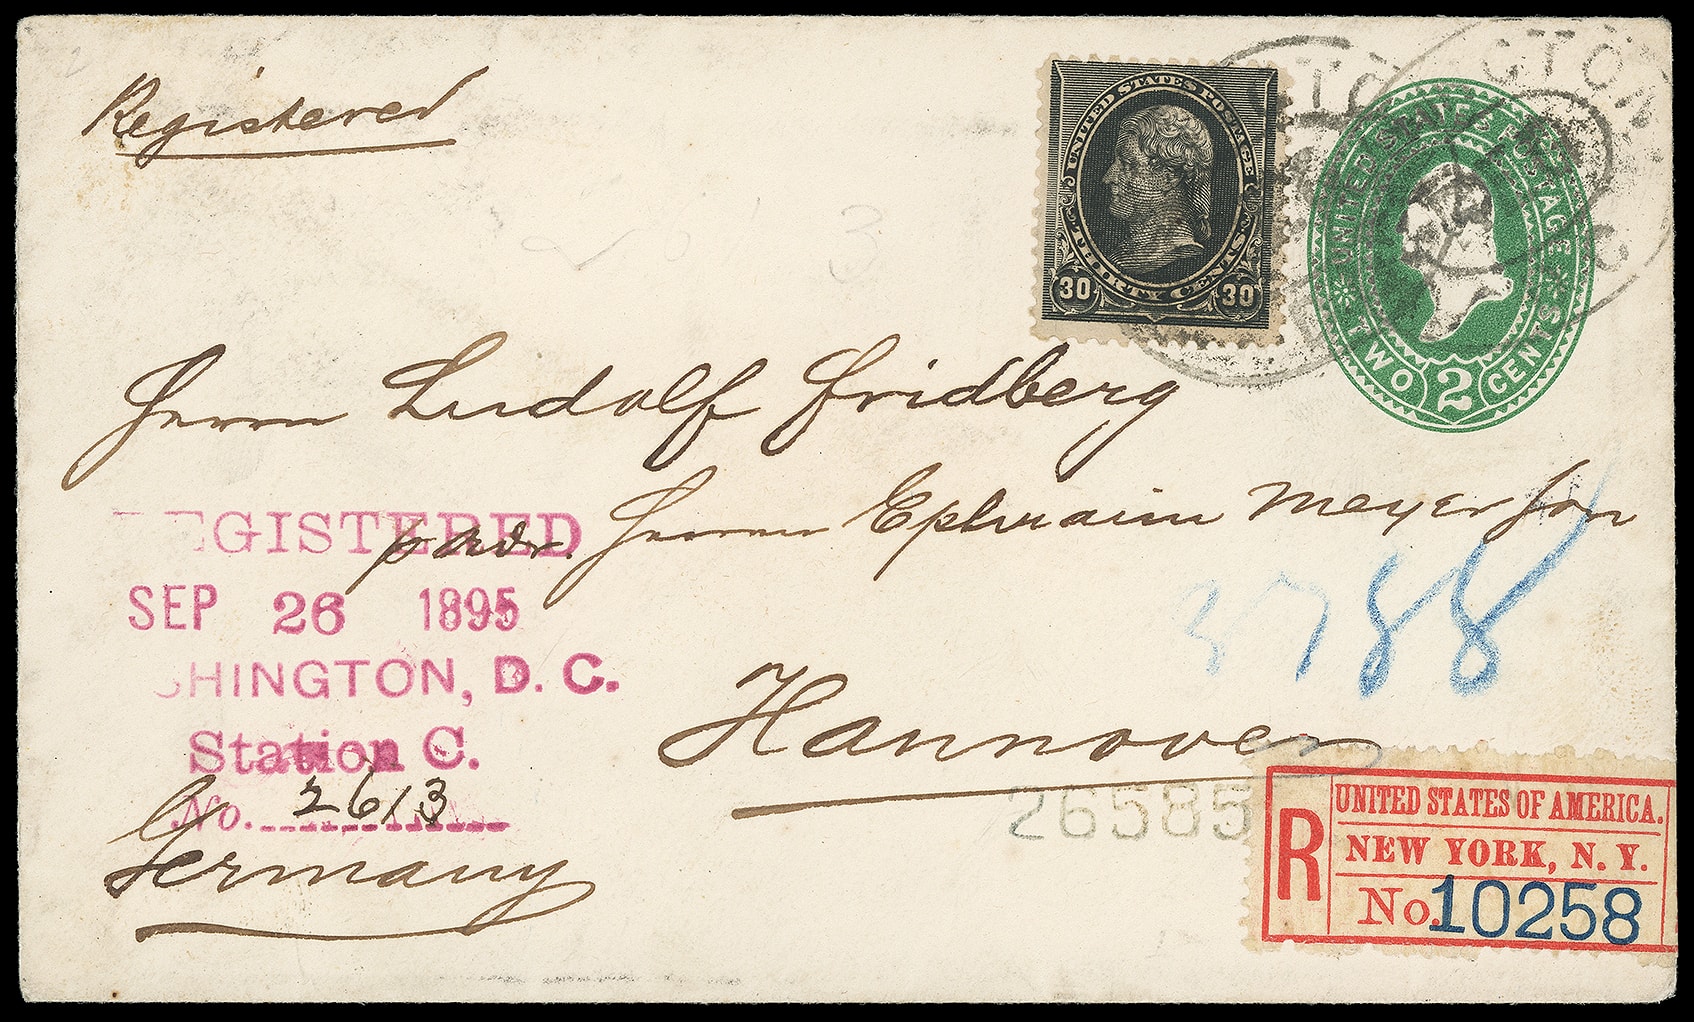 Registered
UNITED STATES POSTAGE
THIRTY CENTS
30 30
UNITED STATES POSTAGE
TWO 2 CENTS
CTON
Herrn Ludolf Fridberg
p adr. Herrn Ephraim Meyer Son
REGISTERED
SEP 26 1895
SHINGTON, D. C.
Station C.
No. 2613
3788
Hannover
Germany
26585
R
UNITED STATES OF AMERICA.
NEW YORK, N. Y.
No. 10258